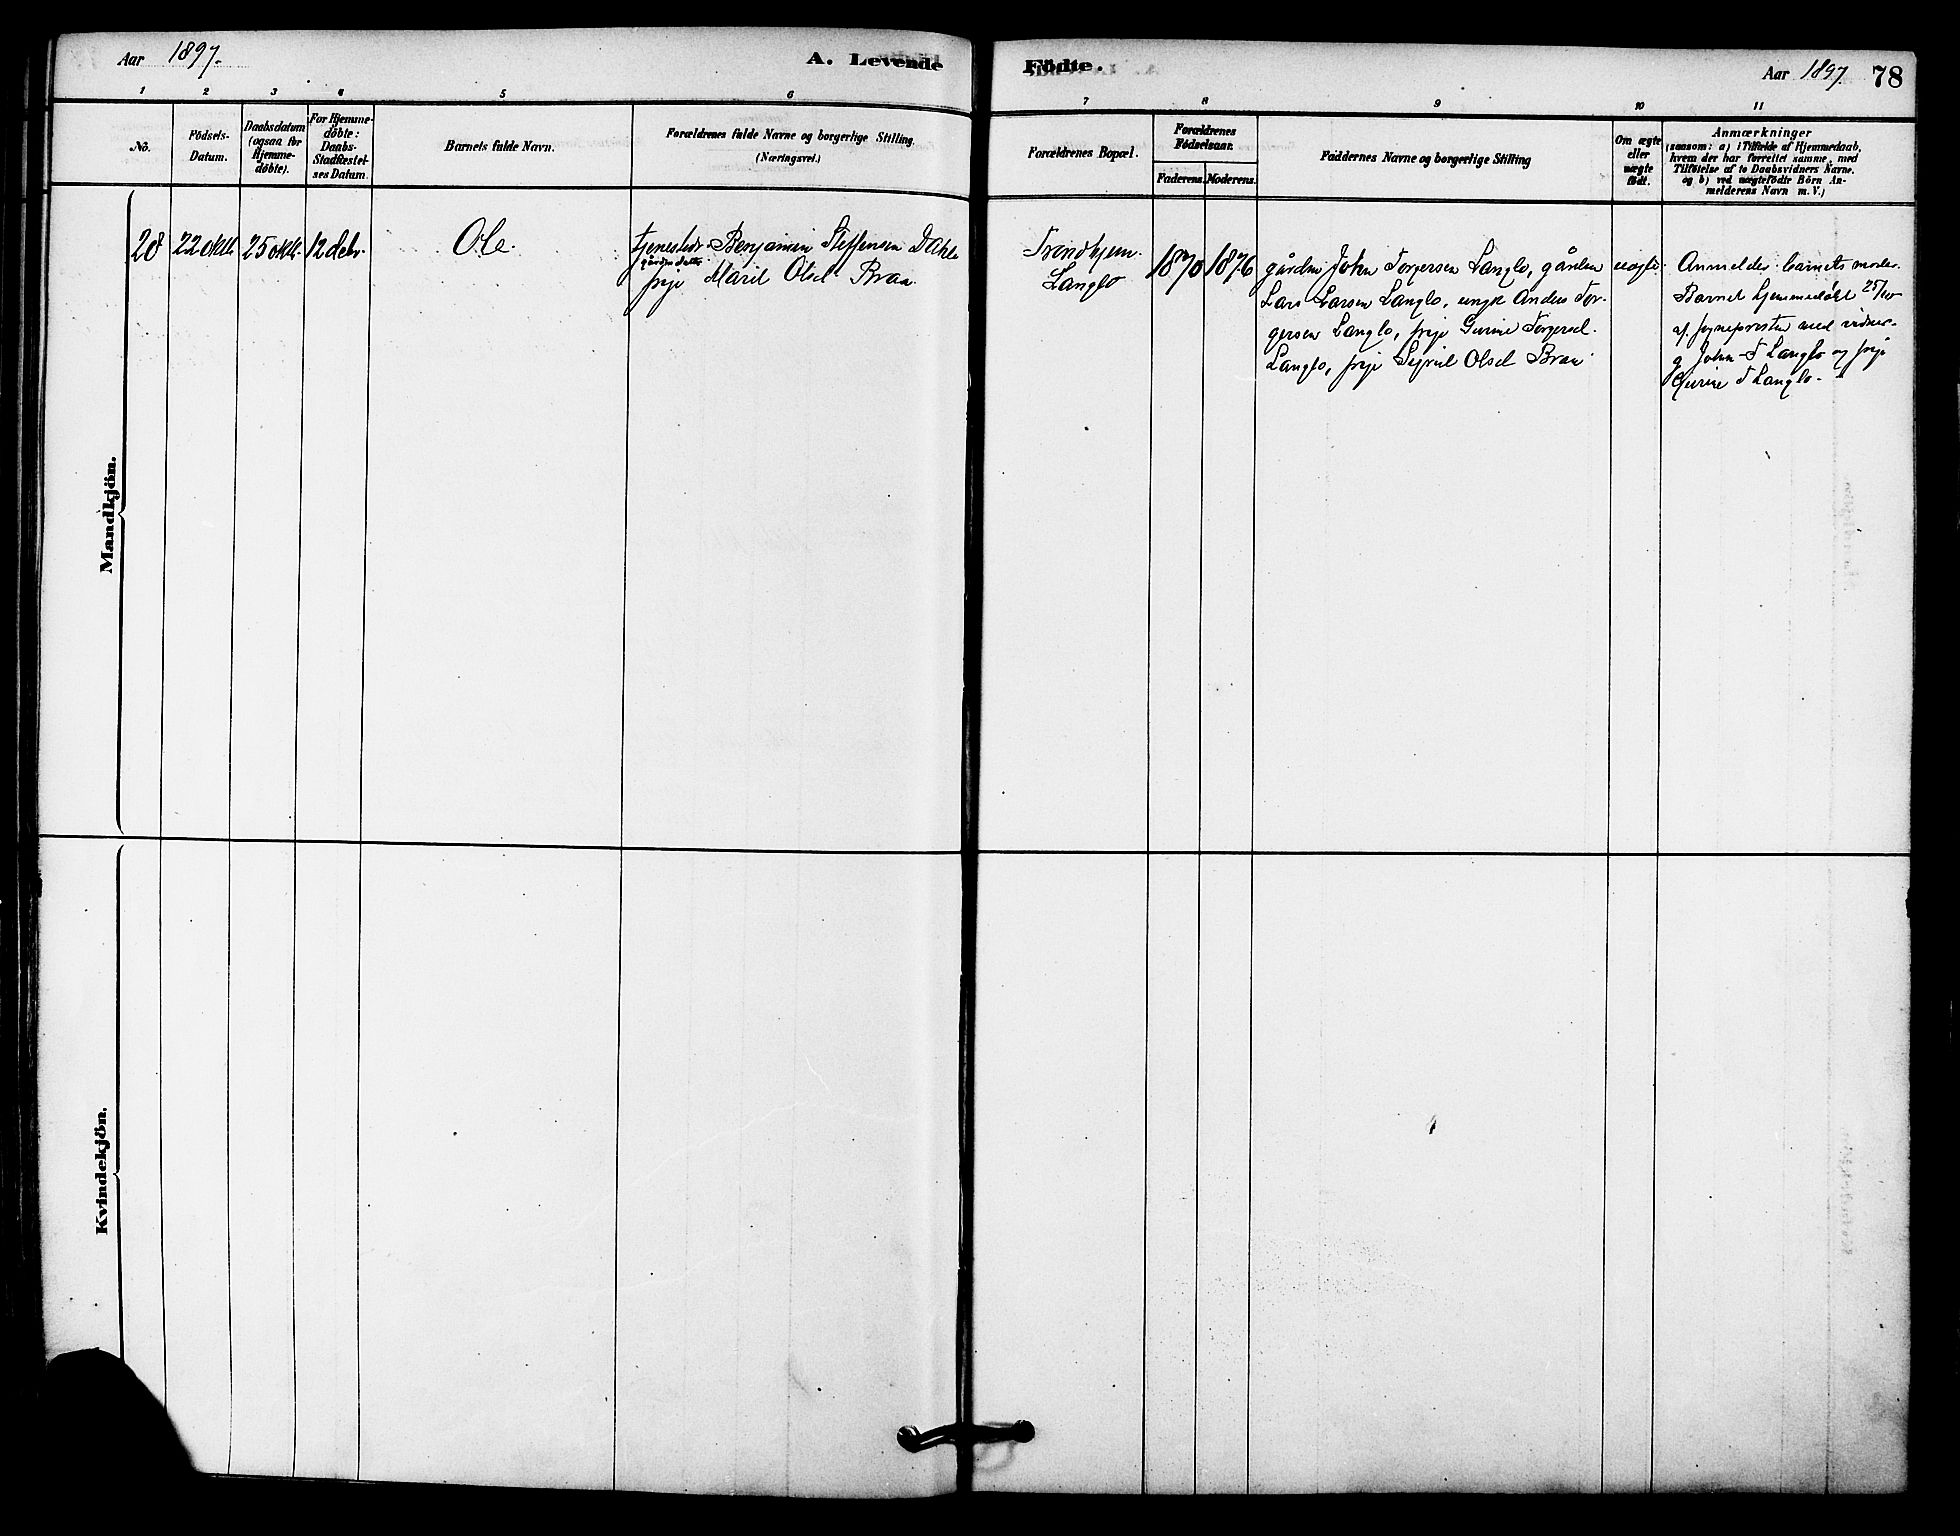 Aar 1897.
A. Levende
1 2 3 4 5 6
No.
Födsels-
Datum.
Daabsdatum
(ogsaa for
Hjemme-
döbte).
For Hjemme-
döbte:
Daabs-
Stadfæstel-
ses Datum.
Barnets fulde Navn.
Forældrenes fulde Navne og borgerlige Stilling.
(Næringsvei.)
Mandkjön.
28 22 oktb 25 oktb. 12 debr. Ole.
tjenestedr. Benjamin Steffensen Dahle
gårdm datter
pige Marit Olsd. Braa.
Kvindekjön.
Födte.
Aar 1897. 78
7 8 9 10 11
Forældrenes Bopæl.
Forældrenes
Födselsaar.
Faderens. Moderens.
Faddernes Navne og borgerlige Stilling
Om ægte
eller
uægte
födt.
Anmærkninger
(saasom: a) i Tilfælde af Hjemmedaab,
hvem der har forrettet samme, med
Tilföielse af to Daabsvidners Navne.
og b) ved uægtefödte Börn An-
melderens Navn m. V.)
Trondhjem.
Langlo
1870 1876
gårdm John Torgersen Langlo, gårdm
Lars Larsen Langlo, ungk Anders Tor-
gersen Langlo, pige Gurine Torgersd.
Langlo, pige Sigrid Olsd Braa
uægte.
Anmelder barnets moder.
Barnet hjemmedøbt 25/10
af sognepresten med vidner.
g John T Langlo og pige
Gurine T Langlo.